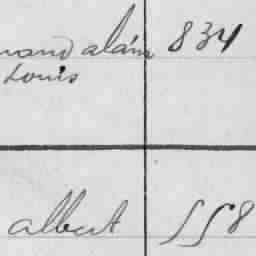 mand alain 834
Louis
albert 558